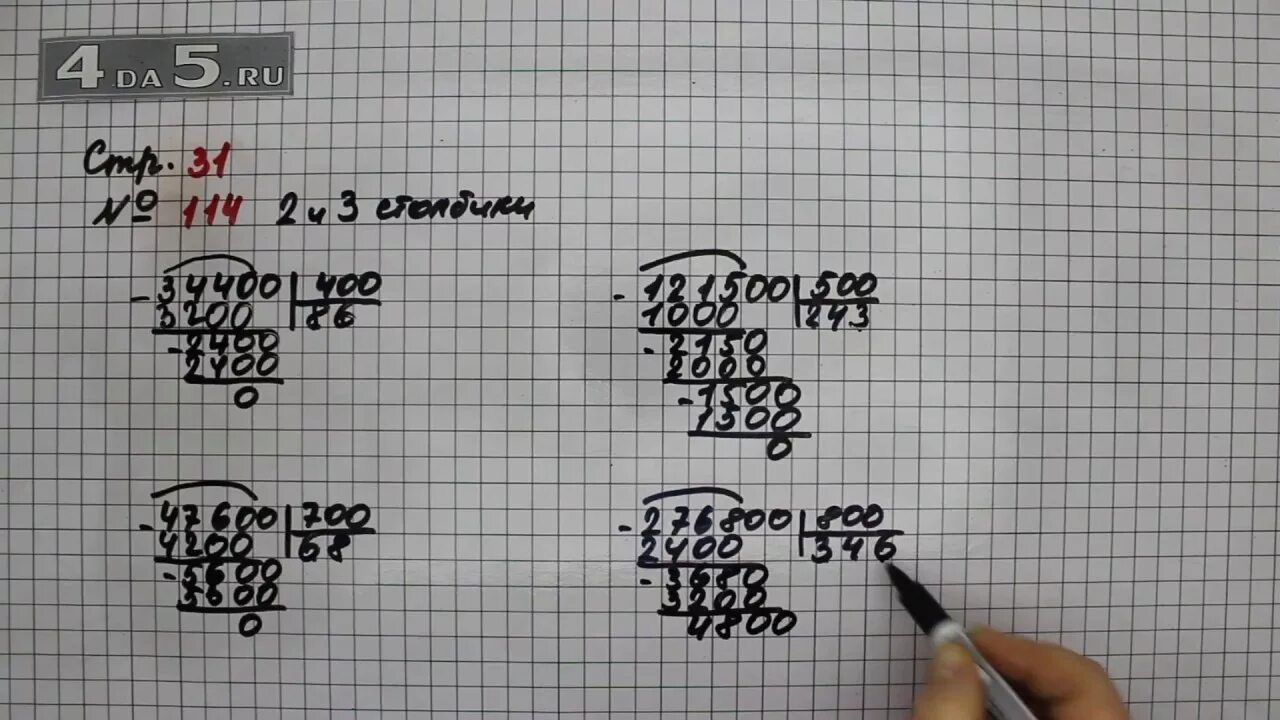 4DA5.RU
Стр. 31
№ 114 2 и 3 столбики
- 34400 | 400
3200 | 86
- 2400
2400
0
- 121500 | 500
1000 | 243
- 2150
2000
- 1500
1500
0
- 47600 | 700
4200 | 68
- 5600
5600
0
- 276800 | 800
2400 | 346
- 3680
3200
4800